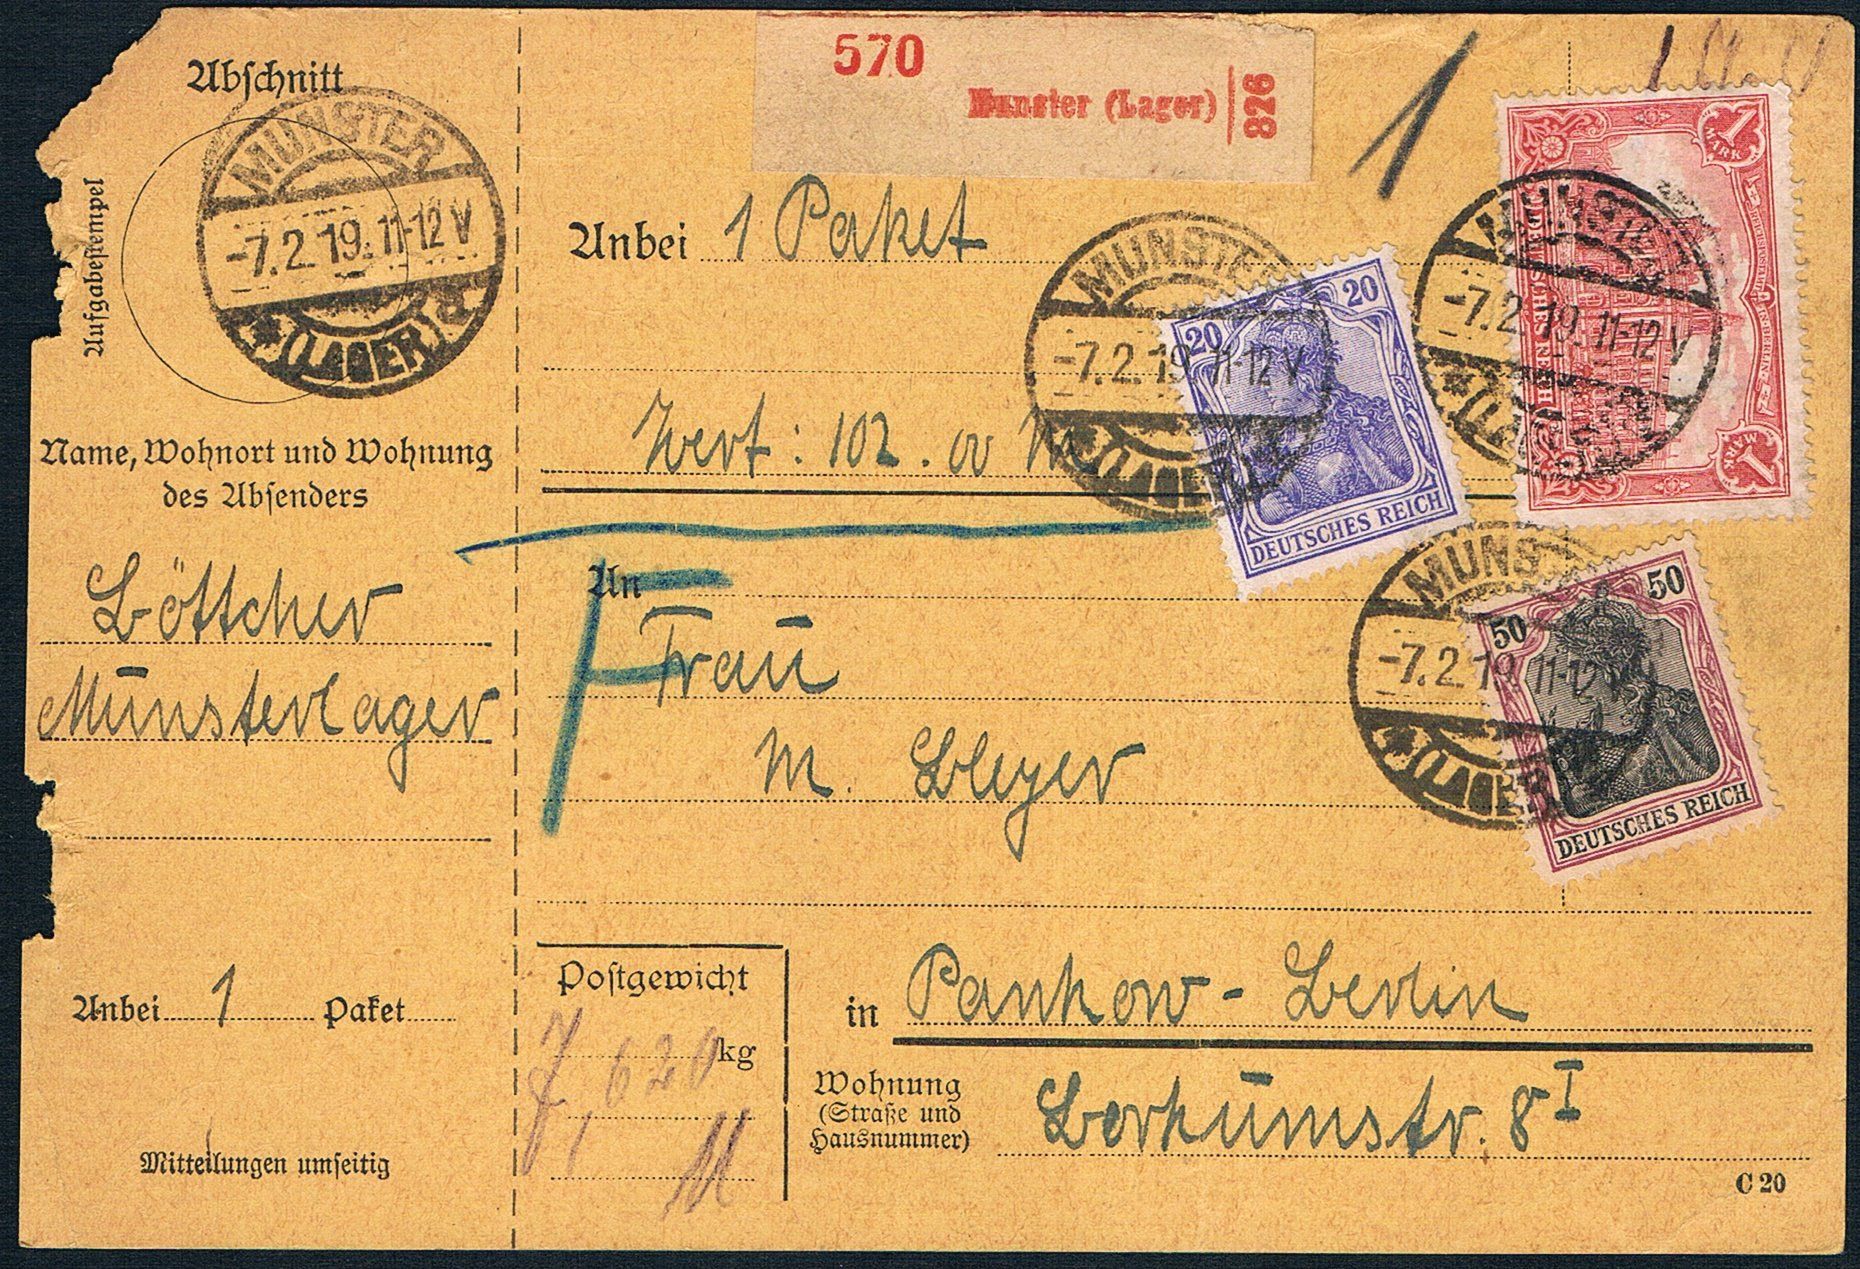 Abschnitt
Aufgabestempel
MUNSTER
-7.2.19.11-12 V
* (LAGER) d
Name, Wohnort und Wohnung
des Absenders
Böttcher
Munsterlager
Anbei 1 Paket
Mitteilungen umseitig
570
Munster (Lager)
826
1
Anbei 1 Paket
Wert: 102.00 M
MUNSTER
-7.2.19 11-12 V
* (LAGER)
20 20
DEUTSCHES REICH
MUNSTER
-7.2.19.11-12 V
1 MARK
REICHSPOSTAMT IN BERLIN
DEUTSCHES REICH
1 MARK
MUNS
-7.2.19 11-12 V
* (LAGER)
50 50
DEUTSCHES REICH
F
An
Frau
M. Bleyer
Postgewicht
7,620 kg
in Pankow-Berlin
Wohnung
(Straße und
Hausnummer)
Borkumstr. 8 I
C 20